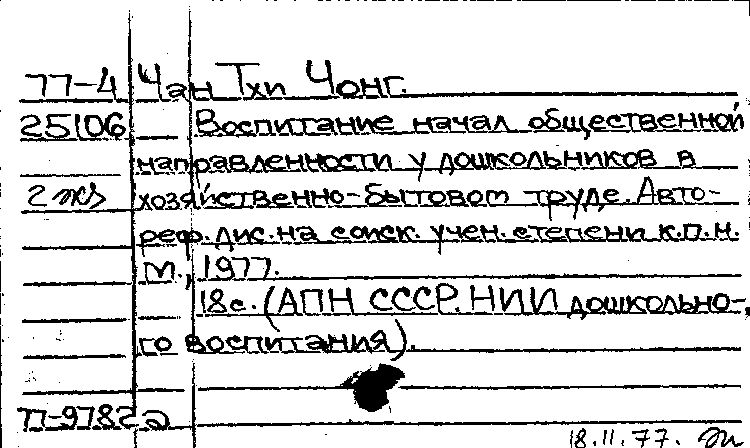 77-4 Чан Тхи Чонг.
25106 Воспитание начал общественной
направленности у дошкольников в
2 экз хозяйственно-бытовом труде. Авто-
реф. дис. на соиск. учен. степени к.п.н.
М., 1977.
18с. (АПН СССР. НИИ дошкольно-
го воспитания).
77-9782а
18.11.77.